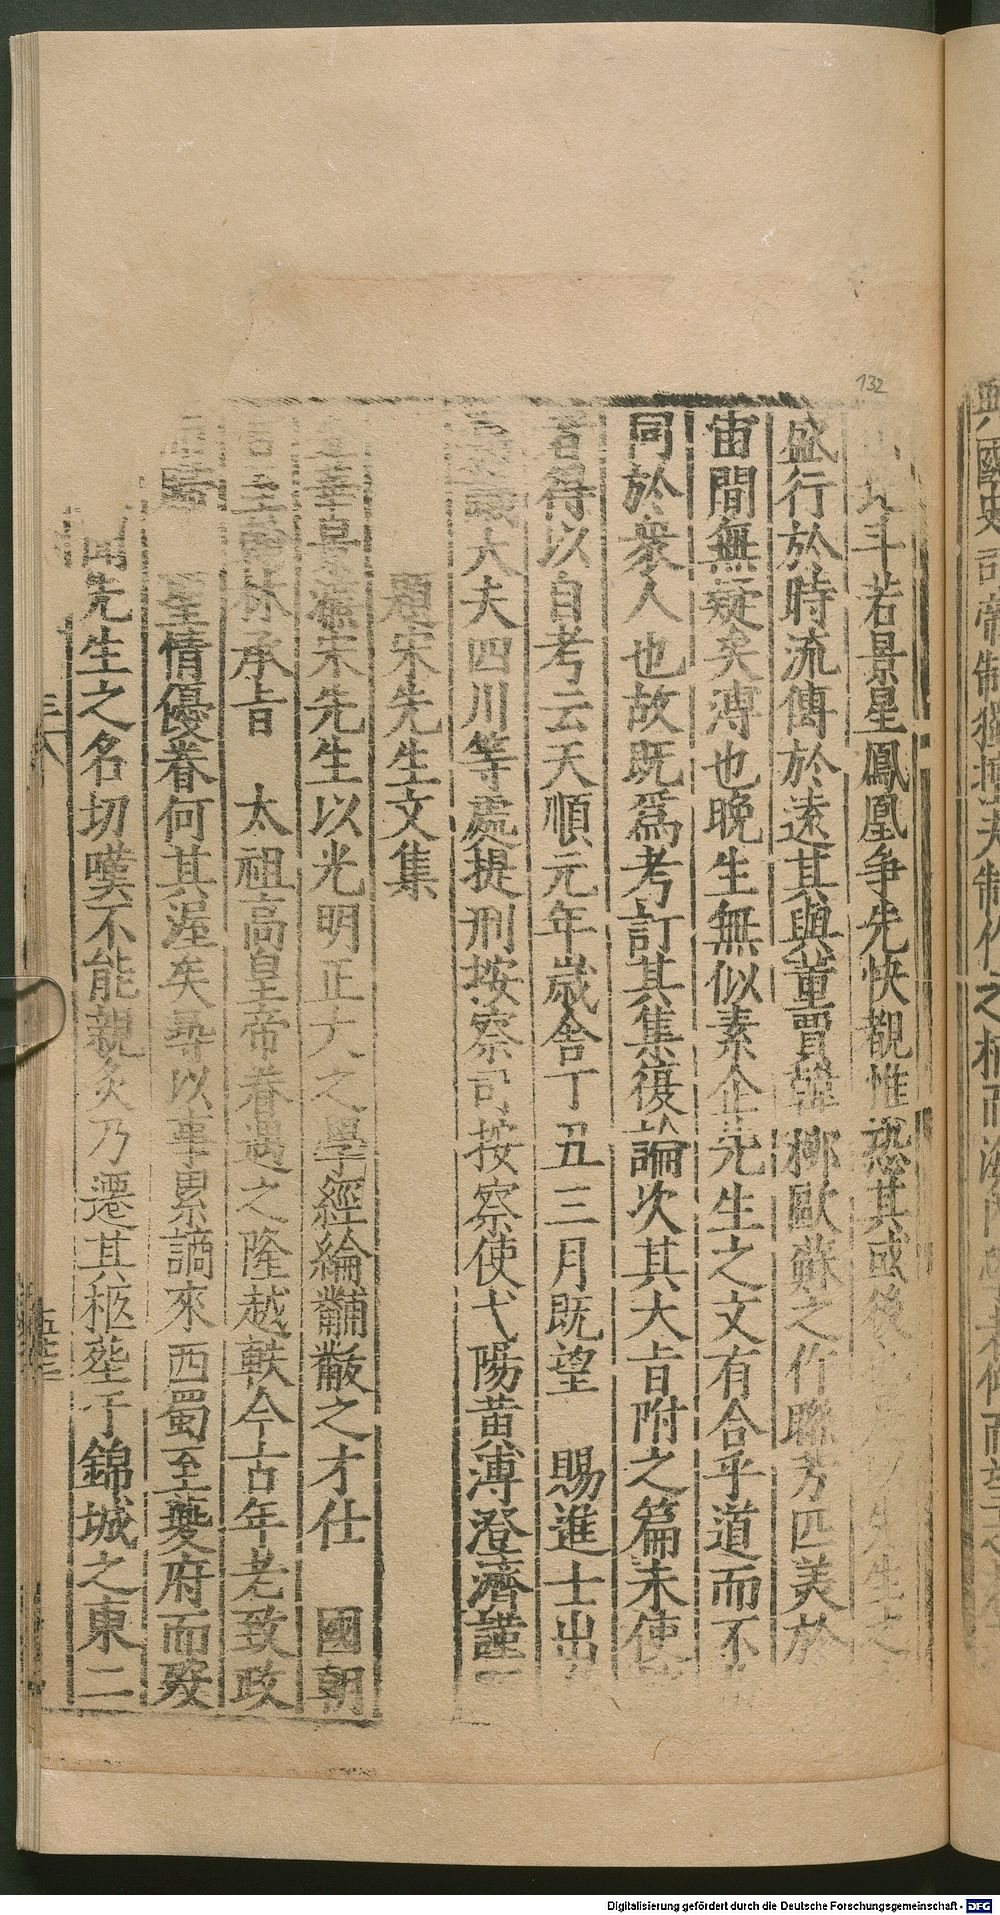 132
斗若景星鳳凰争先快覩惟恐其或後先生之
盛行於時流傳於遠其與董賈韓柳歐蘇之作聯芳匹美於
宙間無疑矣溥也晚生無似素企先生之文有合乎道而不
同於衆人也故既爲考訂其集復論次其大㫖附之篇末使
者得以自考云天順元年歲舍丁丑三月既望 賜進士出
大夫四川等處提刑按察司按察使弋陽黄溥澄濟謹
題宋先生文集
金華景濂宋先生以光明正大之學經綸黼黻之才仕 國朝
林承㫖 太祖高皇帝眷遇之隆越軼今古年老致政
聖情優眷何其渥矣尋以事累謫來西蜀至夔府而歿
聞先生之名切嘆不能親炙乃遷其柩塟于錦城之東二
Digitalisierung gefördert durch die Deutsche Forschungsgemeinschaft - DFG